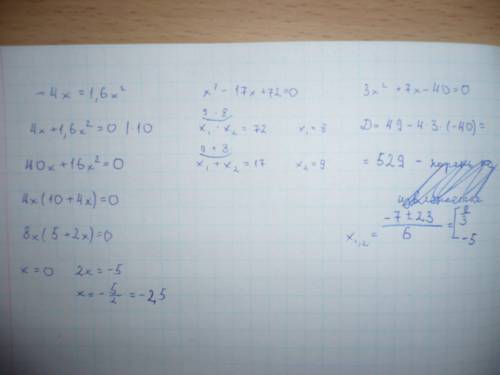 -4x = 1,6x²
4x + 1,6x² = 0 | · 10
40x + 16x² = 0
4x(10 + 4x) = 0
8x(5 + 2x) = 0
x = 0   2x = -5
x = -5/2 = -2,5
x² - 17x + 72 = 0
9 · 8
x₁ · x₂ = 72   x₁ = 8
9 + 8
x₁ + x₂ = 17   x₂ = 9
3x² + 7x - 40 = 0
D = 49 - 4 · 3 · (-40) =
= 529 -
x₁,₂ = (-7 ± 23)/6 = [8/3
-5